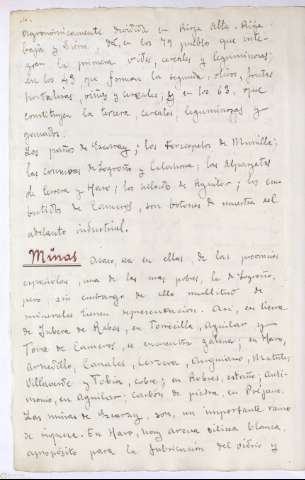 agronómicamente dividida en Rioja Alta, Rioja
baja y Sierra, dé, en los 79 pueblos que inte-
gran la primera vides, cereales y leguminosas;
en los 43 que forman la segunda, olivos, frutas
hortalizas, viñas y cereales, y en los 63, que
constituyen la tercera, cereales, leguminosas y
ganados.
Los paños de Ezcaray; los terciopelos de Munilla;
las conservas de Logroño y Calahorra; las alpargatas
de Cervera y Haro; los de Aguilar; los em-
butidos de Cameros, son botones de muestra del
adelanto industrial.
Minas es en ellas, de las provincias
españolas, una de las mas pobres, la de Logroño,
pero, sin embargo de ello multitud de
minerales tienen representación. Así, en tierra
de Jubera de Robres, en Torrecilla, Aguilar y
Torre de Cameros, se encuentra galena; en Haro,
Arnedillo, Canales, Cervera, Anguiano, Matute,
Villavelayo y Tobia, cobre; en Robres, estaño; anti-
monio, en Aguilar; carbón de piedra, en Préjano.
Las minas de Ezcaray, son, un importante ramo
de riqueza. En Haro, hay arena silícea blanca,
apropósito para la fabricación del vidrio y